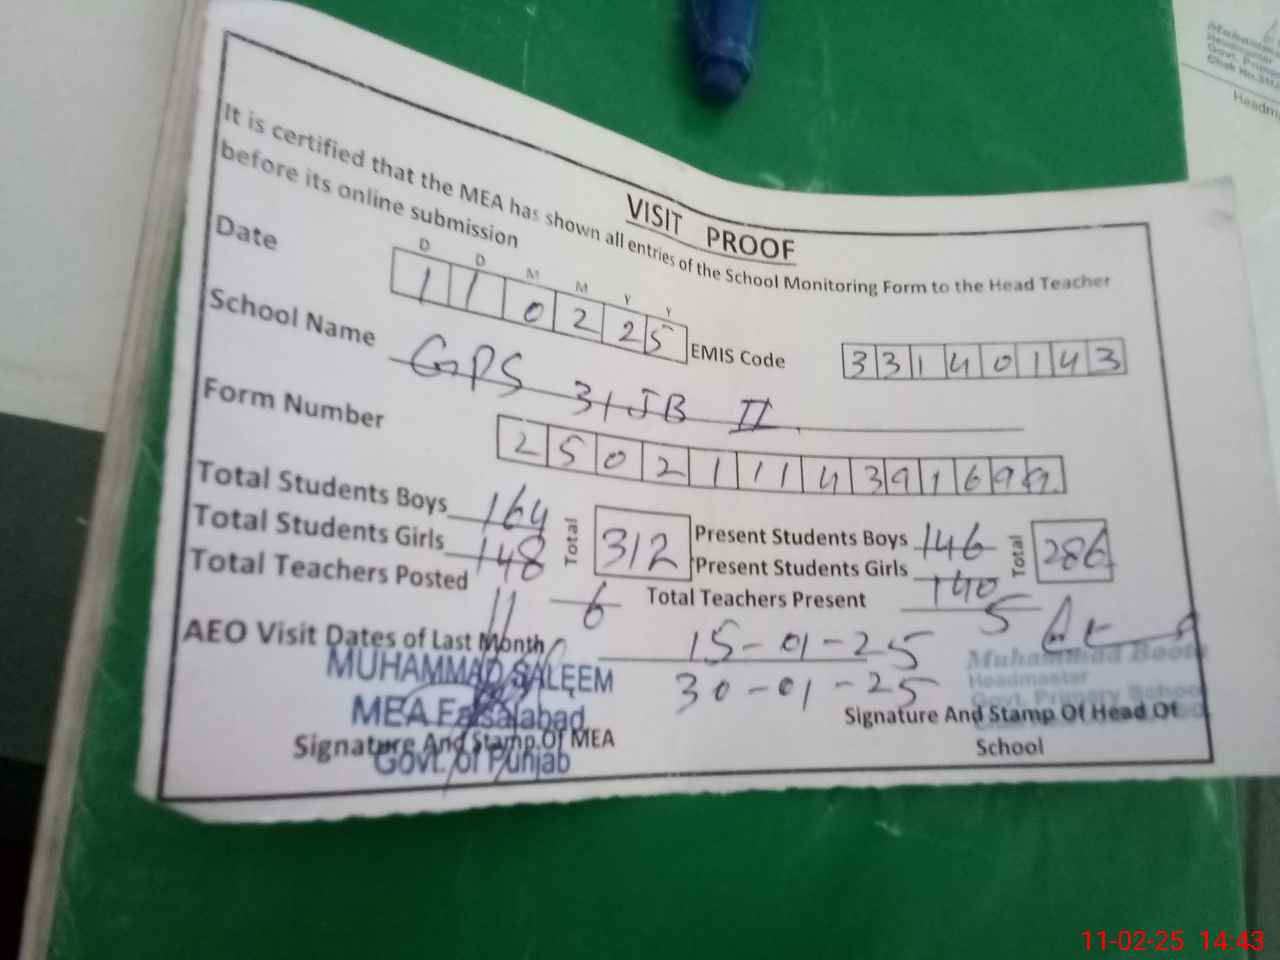 VISIT PROOF
It is certified that the MEA has shown all entries of the School Monitoring Form to the Head Teacher
before its online submission
D D M M Y Y
Date 1 1 0 2 2 5 EMIS Code 3 3 1 4 0 1 4 3
School Name GPS 31 JB II
Form Number 2 5 0 2 1 1 1 4 3 9 1 6 9
Total Students Boys 164 Total 312 Present Students Boys 146 Total 286
Total Students Girls 148 Present Students Girls 140
Total Teachers Posted 6 Total Teachers Present 5
AEO Visit Dates of Last Month 15-01-25
30-01-25
MUHAMMAD SALEEM
MEA Faisalabad
Govt. of Punjab
Signature And Stamp Of MEA
Muhammad Boota
Headmaster
Govt. Primary School
Signature And Stamp Of Head Of
School
Headmaster
Govt. Primary
11-02-25 14:43